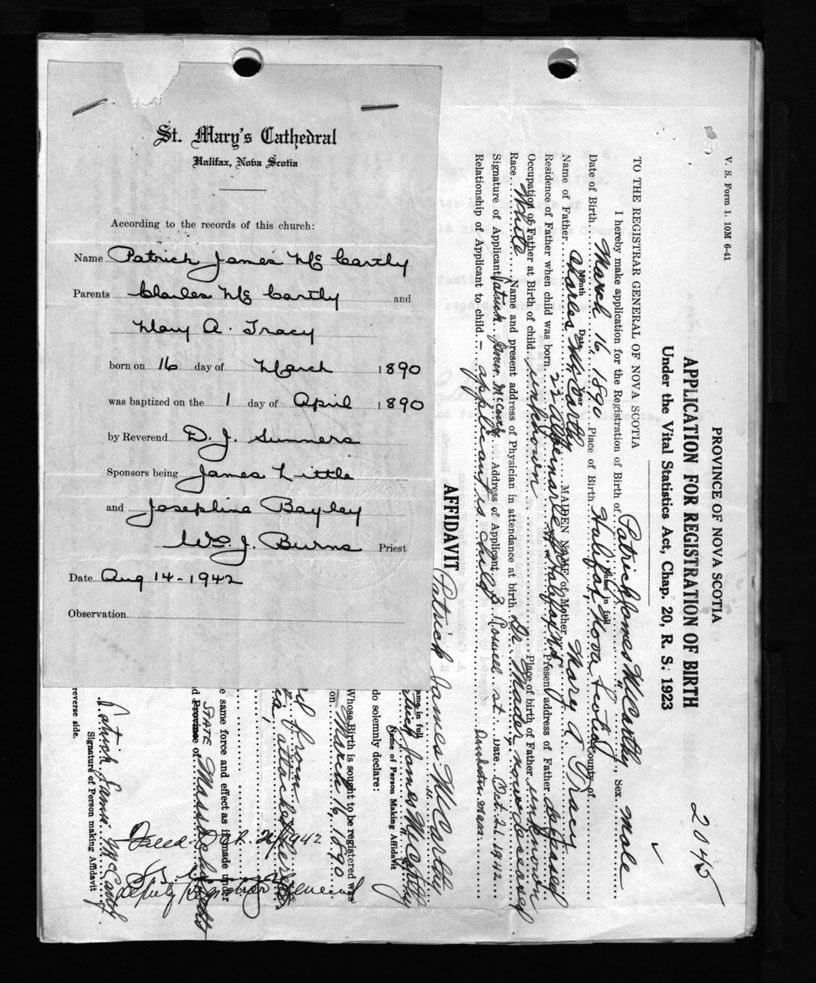 St. Mary's Cathedral
Halifax, Nova Scotia
According to the records of this church:
Name Patrick James McCarthy
Parents Charles McCarthy and
Mary A. Tracy
born on 16 day of March 1890
was baptized on the 1 day of April 1890
by Reverend D. J. Summers
Sponsors being James Little
and Josephine Bayley
Wm. J. Burns Priest
Date Aug 14-1942
Observation
V. S. Form 1. 10M 6-41
2045
PROVINCE OF NOVA SCOTIA
APPLICATION FOR REGISTRATION OF BIRTH
Under the Vital Statistics Act, Chap. 20, R. S. 1923
TO THE REGISTRAR GENERAL OF NOVA SCOTIA
I hereby make application for the Registration of Birth of Patrick James McCarthy, Sex Male
Name in full
Date of Birth March 16 1890 Place of Birth Halifax, Nova Scotia County of
Month Date Year
Name of Father Charles McCarthy MAIDEN NAME of Mother Mary A Tracy
Residence of Father when child was born 22 Halifax N.S. Present address of Father deceased
Occupation of Father at Birth of child unknown Place of birth of Father unknown
Race White Name and present address of Physician in attendance at birth Dr now deceased
Signature of Applicant Patrick James McCarthy Address of Applicant 3 st. Date Oct. 21 1942
Relationship of Applicant to child - applicant is child
AFFIDAVIT
Patrick James McCarthy
ame in full
James McCarthy
Name of Person Making Affidavit
do solemnly declare:
Whose Birth is sought to be registered was
on March 16, 1890
from
attached
e same force and effect as if made under
d Province of STATE Massachusetts
Patrick James McCarthy
Signature of Person making Affidavit
reverse side.
1942
Deputy Registrar General